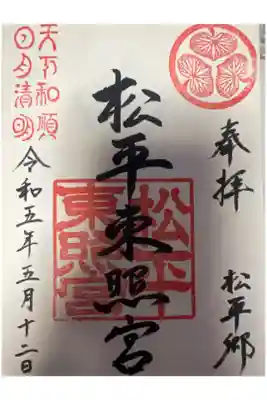 奉拝
松平郷
松平東照宮
松平東照宮
天下和順
日月清明
令和五年五月十二日